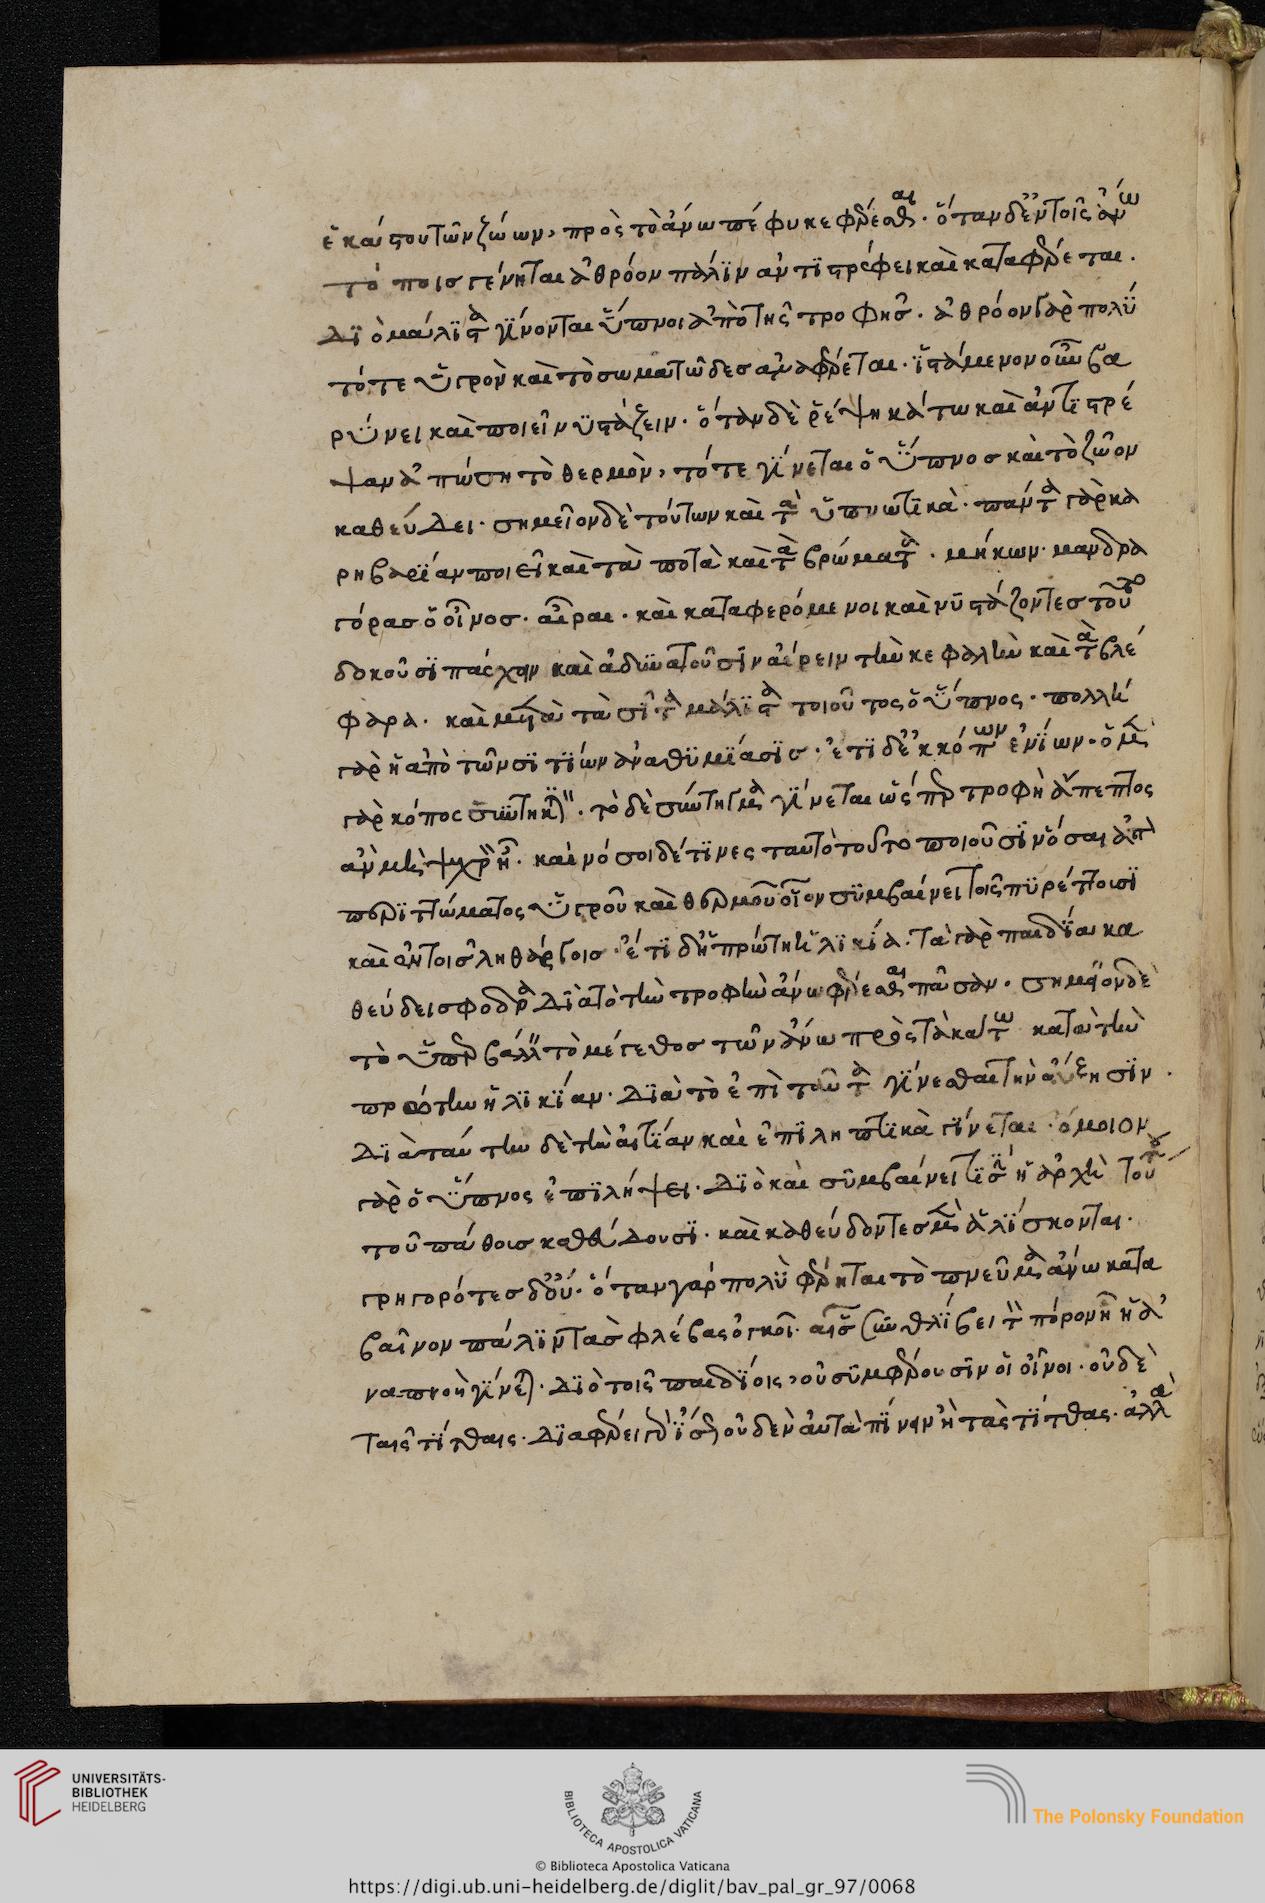 ἑκάστου τῶν ζώων, πρὸς τὸ ἄνω πέφυκε φέρεσθαι· ὅταν δ' ἐν τοῖς ἄνω
τόποις γένηται ἀθρόον πάλιν ἀντιστρέφει καὶ καταφέρεται.
Διὸ μάλιστα γίνονται ὕπνοι ἀπὸ τῆς τροφῆς. ἀθρόον γὰρ πολὺ
τό τε ὑγρὸν καὶ τὸ σωματῶδες ἀναφέρεται. ἱστάμενον οὖν βα
ρύνει καὶ ποιεῖ νυστάζειν. ὅταν δὲ ῥέψη κάτω καὶ ἀντιστρέ
ψαν ἀπώση τὸ θερμὸν, τότε γίνεται ὁ ὕπνος καὶ τὸ ζῶον
καθεύδει. σημεῖον δὲ τούτων καὶ τὰ ὑπνωτικὰ. πάντα γὰρ κα
ρηβαρίαν ποιεῖ καὶ τὰ ποτὰ καὶ τὰ βρώματα. μήκων. μανδρα
γόρας ὁ οἶνος. αἶραι. καὶ καταφερόμενοι καὶ νυστάζοντες τοῦτο
δοκοῦσι πάσχειν καὶ ἀδυνατοῦσιν αἴρειν τὴν κεφαλὴν καὶ τὰ βλέ
φαρα. καὶ μετὰ τὰ σιτία μάλιστα τοιοῦτος ὁ ὕπνος. πολλὴ
γὰρ ἡ ἀπὸ τῶν σιτίων ἀναθυμίασις. ἔτι δ' ἐκ κόπων ἐνίων. ὁ μὲν
γὰρ κόπος συντηκτικόν. τὸ δὲ σύντηγμα γίνεται ὥσπερ τροφὴ ἄπεπτος
ἂν μὴ ψυχρὸν ἦ. καὶ νόσοι δέ τινες ταυτὸ τοῦτο ποιοῦσιν ὅσαι ἀπὸ
περιττώματος ὑγροῦ καὶ θερμοῦ οἷον συμβαίνει τοῖς πυρέττουσι
καὶ ἐν τοῖς ληθάργοις. ἔτι δ' ἡ πρώτη ἡλικία. τὰ γὰρ παιδία κα
θεύδει σφόδρα διὰ τὸ τὴν τροφὴν ἄνω φέρεσθαι πᾶσαν. σημεῖον δὲ
τὸ ὑπερβάλλειν τὸ μέγεθος τῶν ἄνω πρὸς τὰ κάτω κατὰ τὴν
πρώτην ἡλικίαν. Διὰ τὸ ἐπὶ ταῦτα γίνεσθαι τὴν αὔξησιν.
Διὰ ταύτην δὲ τὴν αἰτίαν καὶ ἐπιληπτικὰ γίνεται. ὅμοιον
γὰρ ὁ ὕπνος ἐπιλήψει. Διὸ καὶ συμβαίνει τισὶν ἡ ἀρχὴ τούτου
τοῦ πάθους καθεύδουσι. καὶ καθεύδοντες μὲν ἁλίσκονται.
γρηγορότες δ' οὔ. ὅταν γὰρ πολὺ φέρηται τὸ πνεῦμα ἄνω κατα
βαῖνον πάλιν τὰς φλέβας ὀγκοῖ. καὶ συνθλίβει τὸν πόρον δι' οὗ ἡ ἀ
ναπνοὴ γίνεται. Διὸ τοῖς παιδίοις, οὐ συμφέρουσιν οἱ οἶνοι. οὐδὲ
ταῖς τίτθαις. Διαφέρει γὰρ ἴσως οὐδὲν αὐτὰ πίνειν ἢ τὰς τίτθας. ἀλλὰ
UNIVERSITÄTS-
BIBLIOTHEK
HEIDELBERG
BIBLIOTECA APOSTOLICA VATICANA
The Polonsky Foundation
© Biblioteca Apostolica Vaticana
https://digi.ub.uni-heidelberg.de/diglit/bav_pal_gr_97/0068